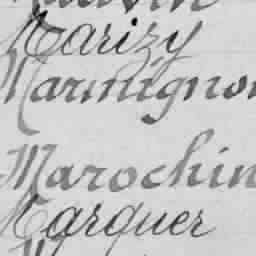 Marizy
Marmignon
Marochin
Marquer